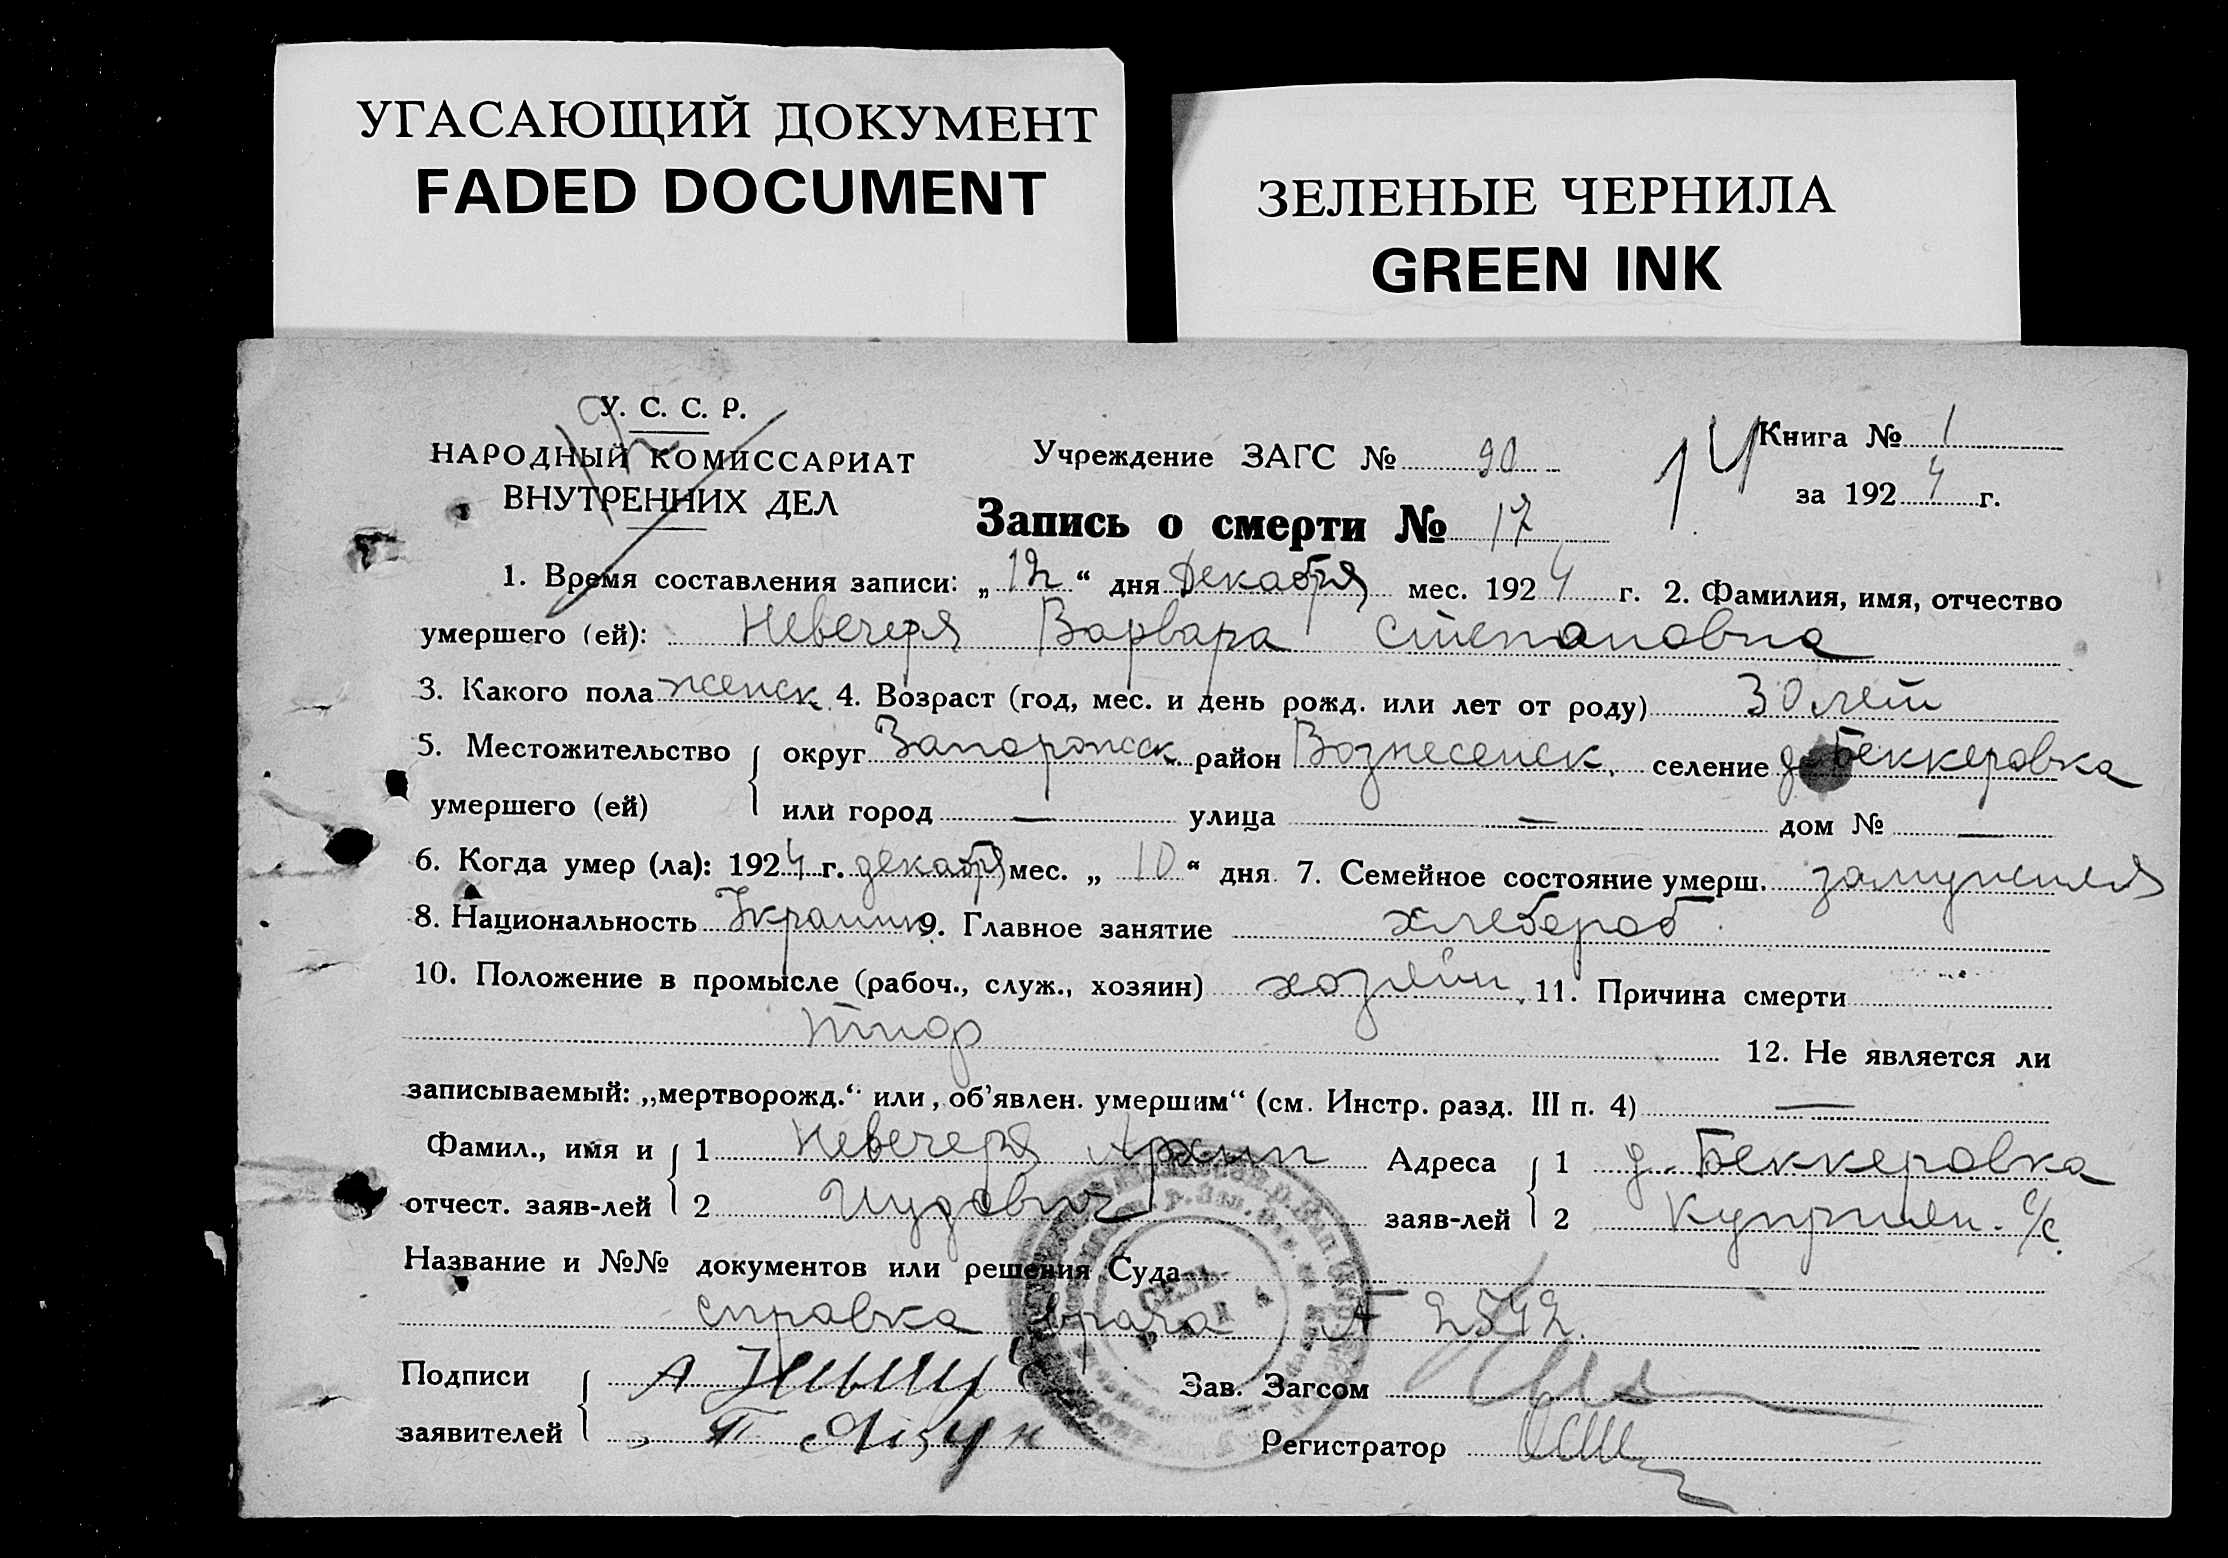 УГАСАЮЩИЙ ДОКУМЕНТ
FADED DOCUMENT
ЗЕЛЕНЫЕ ЧЕРНИЛА
GREEN INK
У. С. С. Р.
НАРОДНЫЙ КОМИССАРИАТ
ВНУТРЕННИХ ДЕЛ
Учреждение ЗАГС № 90
14
Книга № 1
за 1924 г.
Запись о смерти № 17
1. Время составления записи: „12“ дня Декабря мес. 1924 г. 2. Фамилия, имя, отчество
умершего (ей): Невечеря Варвара Степановна
3. Какого пола женск. 4. Возраст (год, мес. и день рожд. или лет от роду) 30 лет
5. Местожительство умершего (ей) округ Запорожск. район Вознесенск. селение д. Беккеровка
или город — улица — дом № —
6. Когда умер (ла): 1924 г. декабря мес. „10“ дня 7. Семейное состояние умерш. замужняя
8. Национальность Украинк 9. Главное занятие хлебороб
10. Положение в промысле (рабоч., служ., хозяин) хозяин. 11. Причина смерти
тиф
12. Не является ли
записываемый: „мертворожд.“ или „об’явлен. умершим“ (см. Инстр. разд. III п. 4) —
Фамил., имя и отчест. заяв-лей 1 Невечеря Архип Адреса заяв-лей 1 д. Беккеровка
2 2 с/с.
Название и №№ документов или решения Суда
справка врача № 2542.
Подписи заявителей А
Зав. Загсом
П
Регистратор